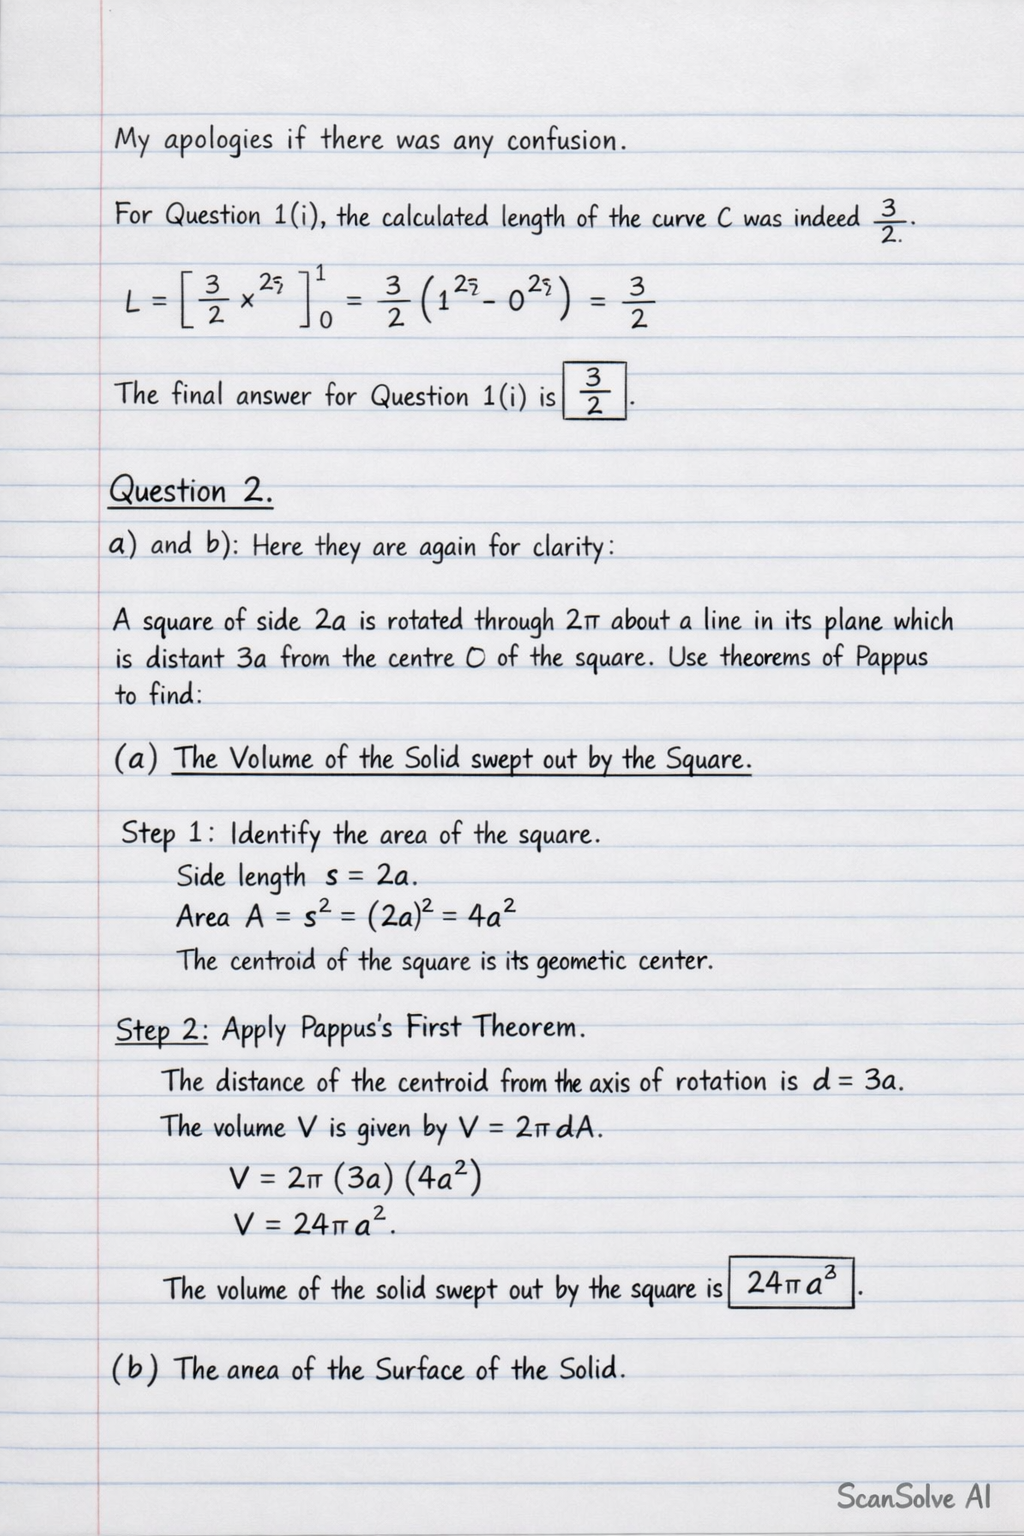 My apologies if there was any confusion.
For Question 1(i), the calculated length of the curve C was indeed 3/2.
L = [3/2 x ]₀¹ = 3/2 (1 - 0 ) = 3/2
The final answer for Question 1(i) is 3/2.
Question 2.
a) and b): Here they are again for clarity:
A square of side 2a is rotated through 2π about a line in its plane which
is distant 3a from the centre O of the square. Use theorems of Pappus
to find:
(a) The Volume of the Solid swept out by the Square.
Step 1: Identify the area of the square.
Side length s = 2a.
Area A = s² = (2a)² = 4a²
The centroid of the square is its geometic center.
Step 2: Apply Pappus's First Theorem.
The distance of the centroid from the axis of rotation is d = 3a.
The volume V is given by V = 2π dA.
V = 2π (3a) (4a²)
V = 24π a².
The volume of the solid swept out by the square is 24π a³.
(b) The anea of the Surface of the Solid.
ScanSolve AI